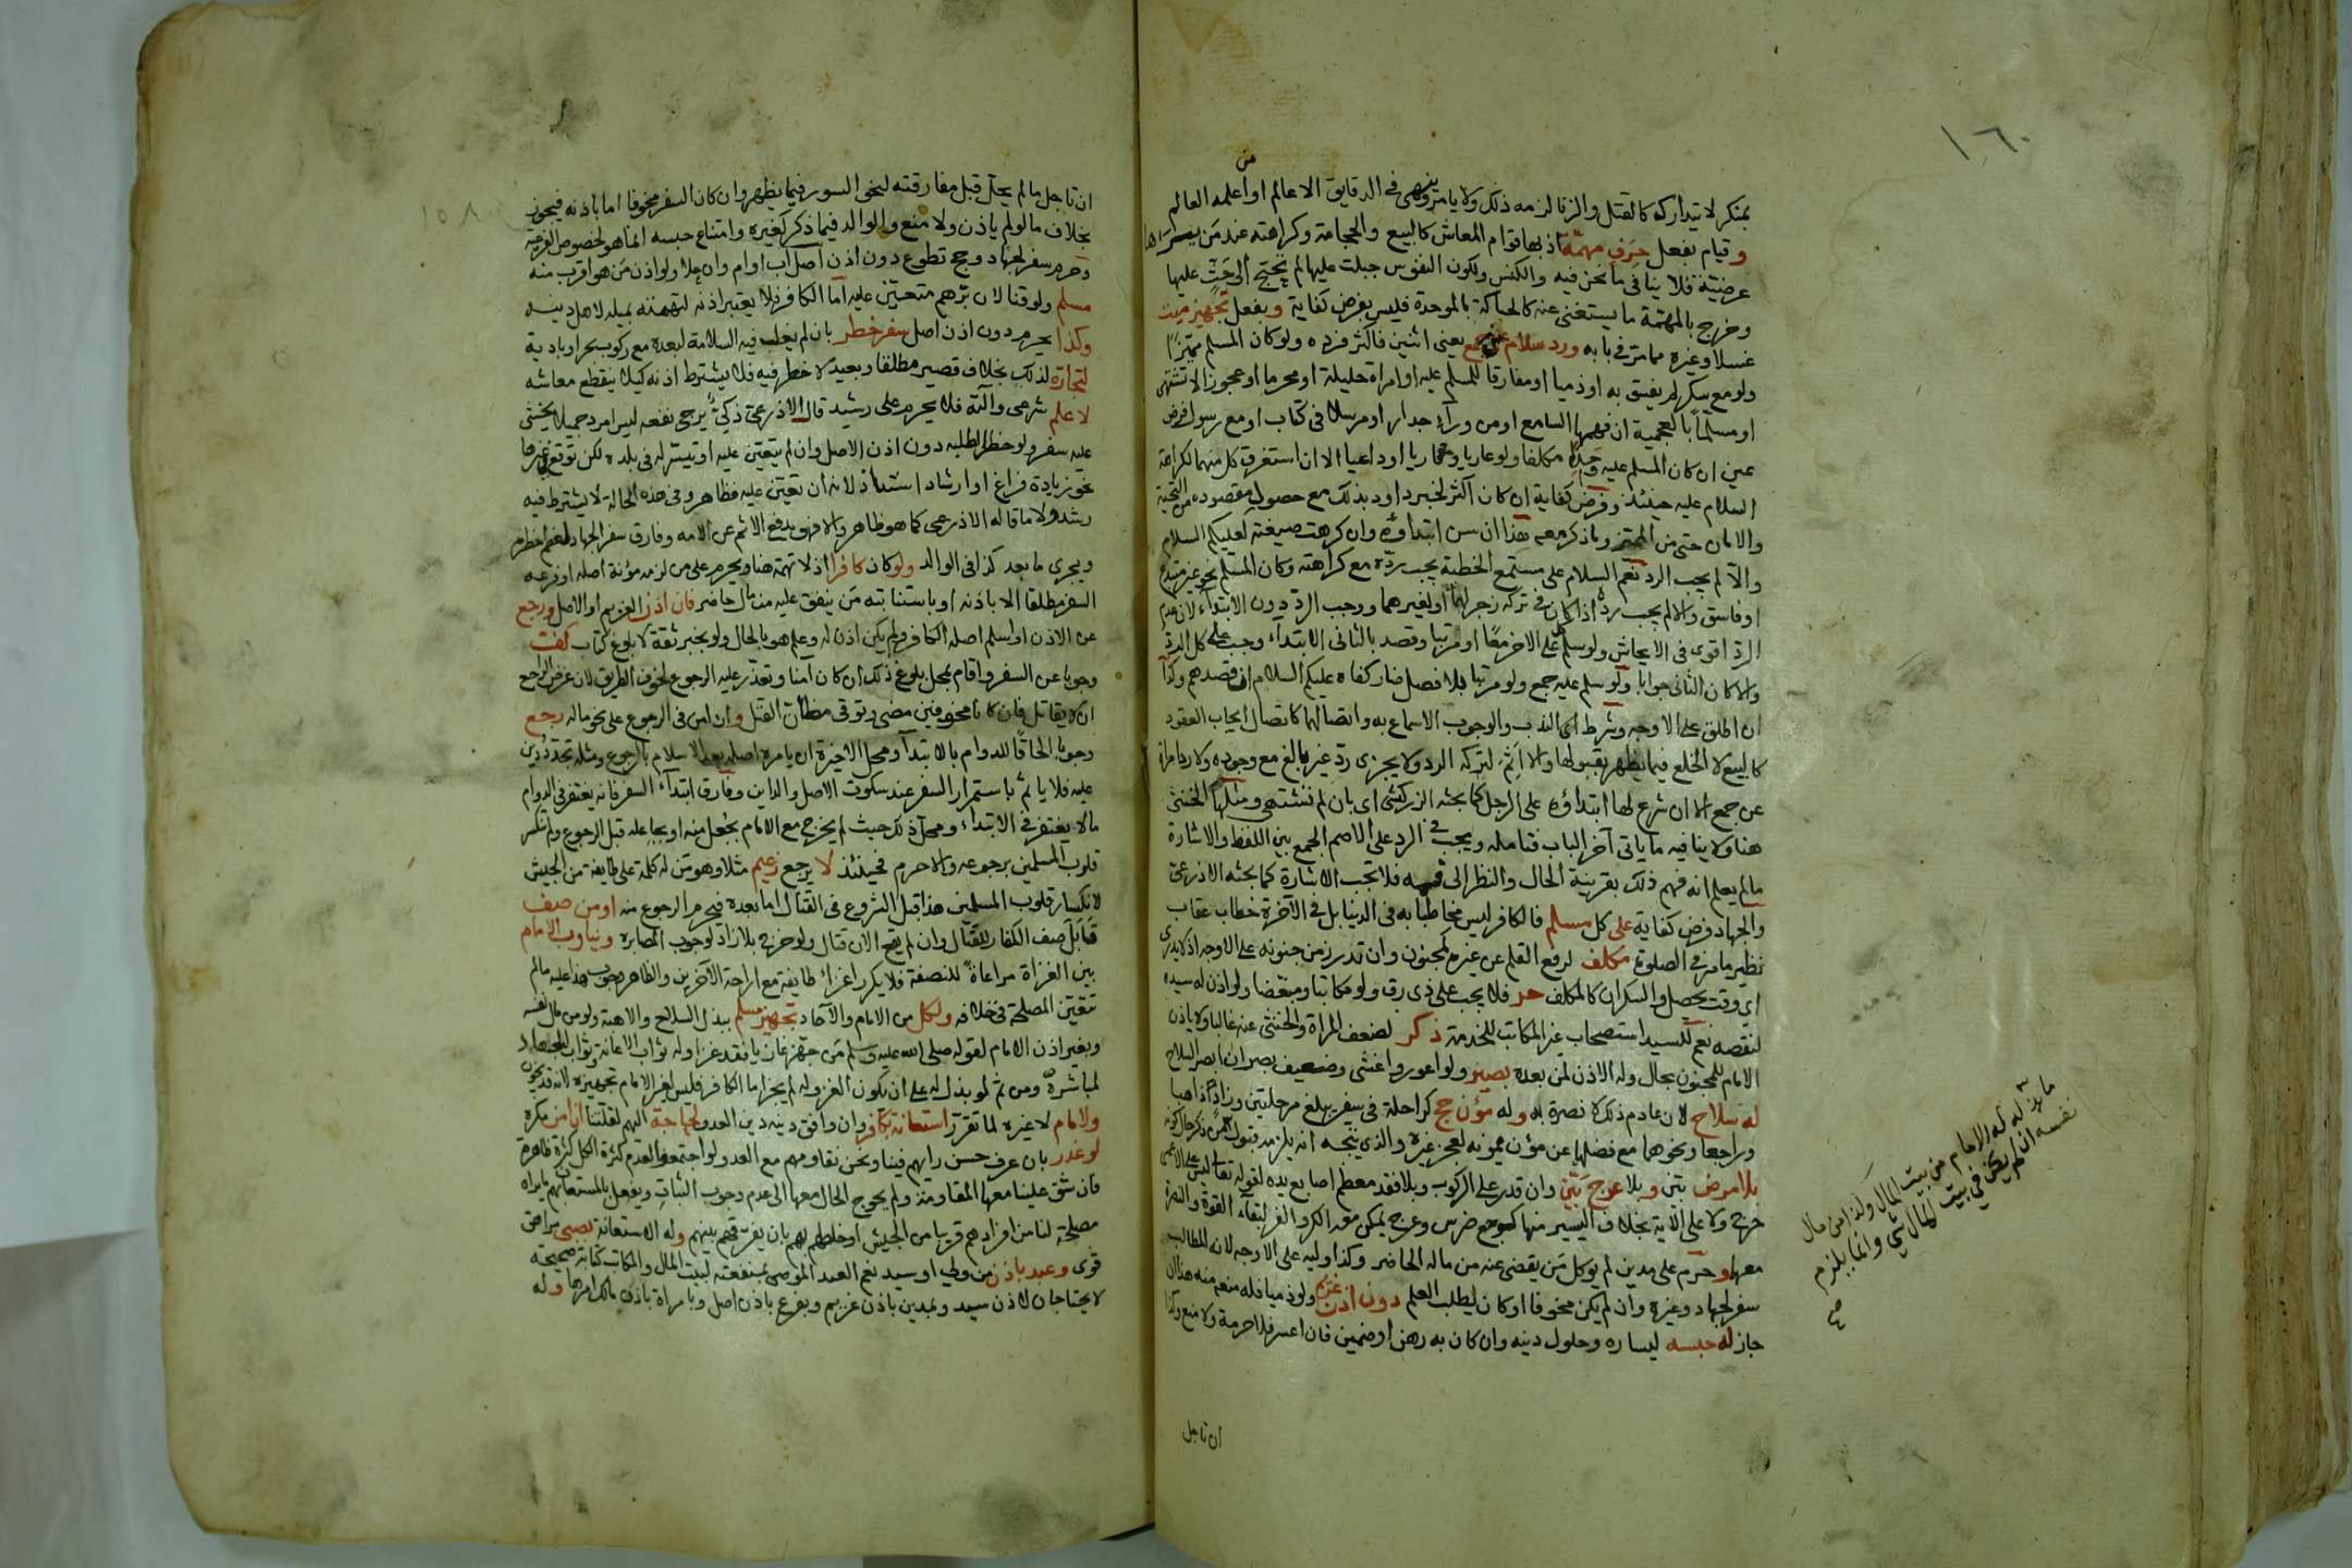 ١٦٠
من
بمنكر لا تيداركه كالقتل والزنا لزمه ذلك ولا يامر وينهى في الدقايق الا عالم او اعلمه العالم
وقيام بفعل حرف مهمة اذ بها قوام المعاش كالبيع والحجامة وكراهته عند من
فلا ينافى ما نحن فيه والكنس ولكون النفوس جبلت عليها لم تحتج الى حث عليها
وخرج بالمهمة ما يستغنى عنه كالحياكة بالموحدة فليس بفرض كفاية وبفعل تجهيز ميت
غسلا وغيره مما مر في بابه ورد سلام عن جمع يعنى اثنين فاكثر فرده ولو كان المسلم مميزا
ولو مع سكر لم يفسق به او ذميا او مفارقا للمسلم عليه او امراة حليلة او محرما او عجوز لا تشتهى
او مسلما بالعجمية ان فهمها السامع او من ورآء جدار او مرسلا في كتاب او مع رسول فرض
عين ان كان المسلم عليه وحده مكلفا ولو عاريا وقاريا او داعيا الا ان استغرق كل منهما لكراهة
السلام عليه حينئذ وفرض كفاية ان كان اكثر لخبر ابى داود بذلك مع حصول مقصوده من التحية
والامان حتى من المميز وما ذكر معه هذا ان سن ابتداؤه وان كرهت صيغته لعليكم السلام
والا لم يجب الرد نعم السلام على مستمع الخطبة يجب رده مع كراهته وكان المسلم نحو غير مبتدع
او فاسق والا لم يجب رده اذا كان في تركه زجر لهما او لغيرهما ووجب الرد دون الابتداء لان عدم
الرد اقوى في الايحاش ولو سلم كل على الاخر معا او مرتبا وقصد بالثانى الابتداء وجب على كل الرد
والا كان الثانى جوابا ولو سلم عليه جمع ولو مرتبا بلا فصل ضار كفاه عليكم السلام ان قصدهم وكذا
ان اطلق على الاوجه وشرط اى الندب والوجوب الاسماع به واتصالهما كاتصال ايجاب العقود
كالبيع لا الخلع فيما يظهر بقبولها والا اثم لتركه الرد ولا يجزى رد غير بالغ مع وجوده ولا رد امراة
عن جمع الا ان شرع لها ابتداؤه على الرجل كما بحثه الزركشى اى بان لم تشتهى ومثلها الخنثى
هنا ولا ينافيه ما ياتى آخر الباب فتامله ويجب في الرد على الاصم الجمع بين اللفظ والاشارة
ما لم يعلم انه فهم ذلك بقرينة الحال والنظر الى فمه فلا تجب الاشارة كما بحثه الاذرعى
والجهاد فرض كفاية على كل مسلم فالكافر ليس مخاطبا به في الدنيا بل في الآخرة خطاب عقاب
نظير ما مر في الصلوة مكلف لرفع القلم عن غيره كمجنون وان ندر زمن جنونه على الاوجه اذ لا يدرى
اى وقت يحصل والسكران كالمكلف حر فلا يجب على ذى رق ولو مكاتبا ومبعضا ولو اذن له سيده
لنقصه نعم للسيد استصحاب غير المكاتب للخدمة ذكر لضعف المراة والخنثى عنه غالبا ولا ياذن
الامام للمجنون بحال وله الاذن لمن بعده بصير ولو اعور واعشى وضعيف بصر ان ابصر السلاح
له سلاح لان عادم ذلك لا نصرة به وله مؤن حج كراحلة في سفر يبلغ مرحلتين وزاد ذاهبا
وراجعا ونحوهما مع فضلها عن مؤن ممونه لعجز غيره والذى يتجه انه يلزمه قبول
بلا مرض بين وبلا عرج بين وان قدر على الركوب وبلا فقد معظم اصابع يده لقوله تعالى ليس على الاعمى
حرج ولا على الآية بخلاف اليسير منها كوجع ضرس وعرج يمكن معه الكر والفر لبقاء القوة والنصرة
معها وحرم على مدين لم يوكل من يقضى عنه من ماله الحاضر وكذا وليه على الاوجه لانه المطالب
سفر لجهاد وغيره وان لم يكن مخوفا او كان لطلب العلم دون اذن غريم ولو ذميا فله منعه منه هذا ان
جاز له حبسه ليساره وحلول دينه وان كان به رهن او ضمين فان اعسر فلا حرمة ولا منع وكذا
ان تاجل
ما يبذله له الامام من بيت المال وكذا من مال
نفسه ان لم يكن في بيت المال شئ وانما يلزم
١٥٨
ان تاجل ما لم يحل قبل مفارقته لنحو السور فيما يظهر وان كان السفر مخوفا اما باذنه فيجوز
بخلاف ما لو لم ياذن ولا منع والوالد فيما ذكر كغيره وامتناع حبسه انما هو لخصوص الفرعية
وحرم سفر لجهاد وحج تطوع دون اذن اصل اب او ام وان علا ولو اذن من هو اقرب منه
مسلم ولو قنا لان برهم متعين عليه اما الكافر فلا يعتبر اذنه لتهمته بميله لاهل دينه
وكذا يحرم دون اذن اصل سفر خطر بان لم يغلب فيه السلامة لبعده مع ركوب بحر او بادية
لتجارة لذلك بخلاف قصير مطلقا وبعيد لا خطر فيه فلا يشترط اذنه كيلا ينقطع معاشه
لا علم شرعى وآلته فلا يحرم على رشيد قال الاذرعى ذكى يرجى نفعه ليس امرد جميلا يخشى
عليه سفر ولو خطر لطلبه دون اذن الاصل وان لم يتعين عليه او تيسر له في بلده لكن توقع في غيرها
نحو زيادة فراغ او ارشاد استاذ لانه ان تعين عليه فظاهر وفي هذه الحالة لا يشترط فيه
رشد ولا ما قاله الاذرعى كما هو ظاهر والا فهو يدفع الاثم عن الامه وفارق سفر الجهاد لعظم خطره
ويجرى ما بعد كذا في الوالد ولو كان كافرا اذ لا تهمة هنا ويحرم على من لزمه مؤنة اصله او فرعه
السفر مطلقا الا باذنه او باستنابته من ينفق عليه من مال حاضر فان اذن الغريم او الاصل ورجع
عن الاذن او اسلم اصله الكافر ولم يكن اذن له وعلم هو بالحال ولو بخبر ثقة لا بلوغ كتاب كف
وجوبا عن السفر واقام بمحل بلوغ ذلك ان كان آمنا وتعذر عليه الرجوع لخوف الطريق لان غرض الراجع
ان لا يقاتل فان كانا مخوفين مضى وتوقى مظان القتل وان امن في الرجوع على نحو ماله رجع
وجوبا الحاقا للدوام بالابتدآ ومحل الاخيرة ان يامره اصله بعد الاسلام بالرجوع ومثله تجدد دين
عليه فلا ياثم باستمرار السفر عند سكوت الاصل والداين وفارق ابتدآء السفر فانه يغتفر في الدوام
ما لا يغتفر في الابتداء ومحل ذلك حيث لم يخرج مع الامام بجعل منه او بجاعله قبل الرجوع ولم تنكسر
قلوب المسلمين برجوعه والا حرم فحينئذ لا يرجع زعيم مثلا وهو من له كلمة على طايفة من الجيش
لانكسار قلوب المسلمين هذا قبل الشروع في القتال اما بعده فيحرم الرجوع منه او من صف
قابل صف الكفار للقتال وان لم يقع الان قتال ولو خرج بلا زاد لوجوب المصابرة ويناوب الامام
بين الغزاة مراعاة للنصفة فلا يكرر اغزاء طايفة مع اراحة الآخرين والظاهر وجوب هذا عليه ما لم
تتعين المصلحة في خلافه ولكل من الامام والآحاد تجهيز مسلم ببذل السلاح والاهبة ولو من مال نفسه
وبغير اذن الامام لقوله صلى الله عليه وسلم من جهز غازيا فقد غزا وله ثواب الاعانة وثواب الجهاد
لمباشره ومن ثم لو بذل له على ان يكون الغزو له لم يجز اما الكافر فليس لغير الامام تجهيزه لانه قد يخون
ولامام لا غيره لما تقرر استعانة بكافر وان وافق دينه دين العدو لحاجة اليهم لقلتنا ان امن مكره
لو غدر بان عرف حسن رايهم فينا ونحن نقاومهم مع العدو لو اجتمعوا لعدم كثرة الكل كثرة ظاهرة
فان شق علينا معها المقاومة ولم يحوج الحال معها الى عدم وجوب الثبات ويفعل بالمستعان بهم ما يراه
مصلحة لنا من افرادهم قريبا من الجيش او خلطهم بهم بان يفرقهم بينهم وله الاستعانة بصبى مراهق
قوى وعبد باذن من ولى او سيد نعم العبد الموصى بمنفعته لبيت المال والمكاتب كتابة صحيحة
لا يحتاجان لاذن سيد وبمدين باذن غريم وبفرع باذن اصل وبامراة باذن مالك امرها وله